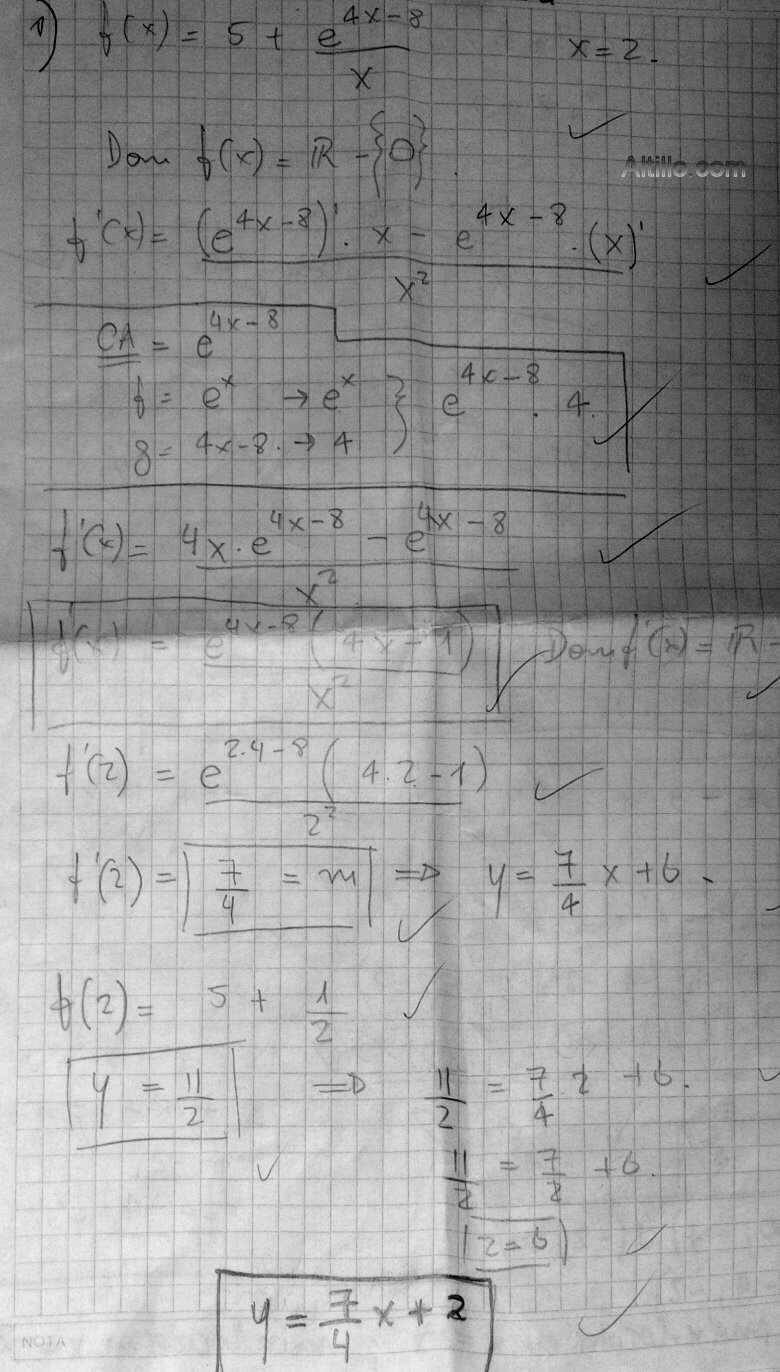 1) f(x) = 5 + e^(4x-8)/x    x = 2.
Dom f(x) = ℝ - {0}.
Altillo.com
f'(x) = ((e^(4x-8))' . x - e^(4x-8) . (x)')/x²
CA = e^(4x-8)
f = e^x → e^x } e^(4x-8) . 4.
g = 4x-8. → 4
f'(x) = (4x . e^(4x-8) - e^(4x-8))/x²
f'(x) = e^(4x-8) (4x-1)/x²    Dom f'(x) = ℝ -
f'(2) = e^(2.4-8) (4.2-1)/2²
f'(2) = 7/4 = m ⇒ y = 7/4 x + b.
f(2) = 5 + 1/2
y = 11/2 ⇒ 11/2 = 7/4 . 2 + b.
11/2 = 7/2 + b.
2 = b
y = 7/4 x + 2
NOTA